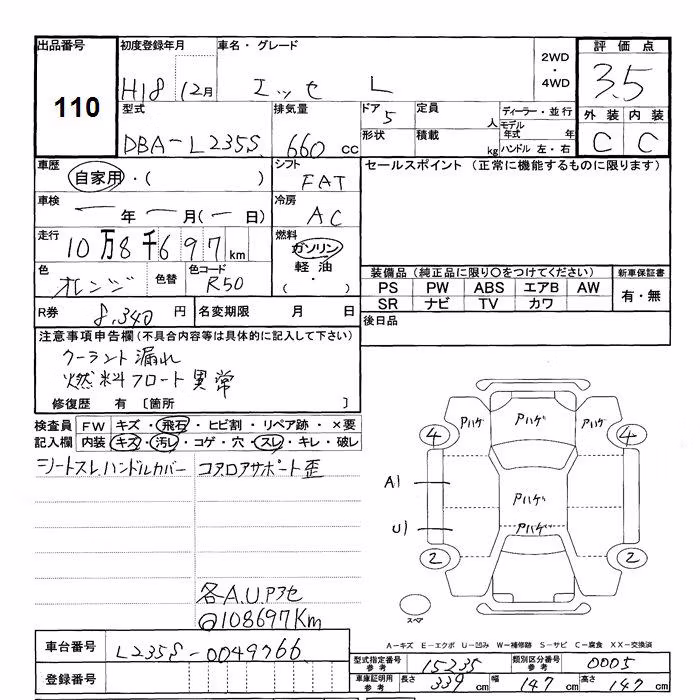 出品番号 初度登録年月 車名・グレード 2WD・4WD 評価点
110 H18 12月 エッセ L 3.5
型式 排気量 ドア 5 定員 人 ディーラー・並行 外装 内装
モデル年式 年
DBA-L235S 660 cc 形状 積載 kg ハンドル 左・右 C C
車歴 シフト セールスポイント (正常に機能するものに限ります)
自家用・( ) FAT
車検 冷房
ー年ー月(ー日) AC
走行 燃料
10万8千697km ガソリン
軽油
(・)
色 色替 色コード 装備品(純正品に限り○をつけてください) 新車保証書
オレンジ R50 PS PW ABS エアB AW 有・無
SR ナビ TV カワ
R券 8,340 円 名変期限 月 日 後日品
注意事項申告欄(不具合内容等は具体的に記入して下さい)
クーラント漏れ
燃料フロート異常
修復歴 有 〔箇所 〕
検査員 FW キズ・飛石・ヒビ割・リペア跡・×要
記入欄 内装 キズ・汚レ・コゲ・穴・スレ・キレ・破レ
シートスレ、ハンドルカバー コアロアサポート歪
Pハゲ Pハゲ Pハゲ
4 4
A1 Pハゲ
U1 Pハゲ
2 2
各A.U.P3セ
@108697Km
スペア
A-キズ E-エクボ U-凹み W-補修跡 S-サビ C-腐食 XX-交換済
車台番号 L235S-0049766
型式指定番号 参考 15235 類別区分番号 参考 0005
登録番号 車庫証明用 参考 長さ 339 cm 幅 147 cm 高さ 147 cm